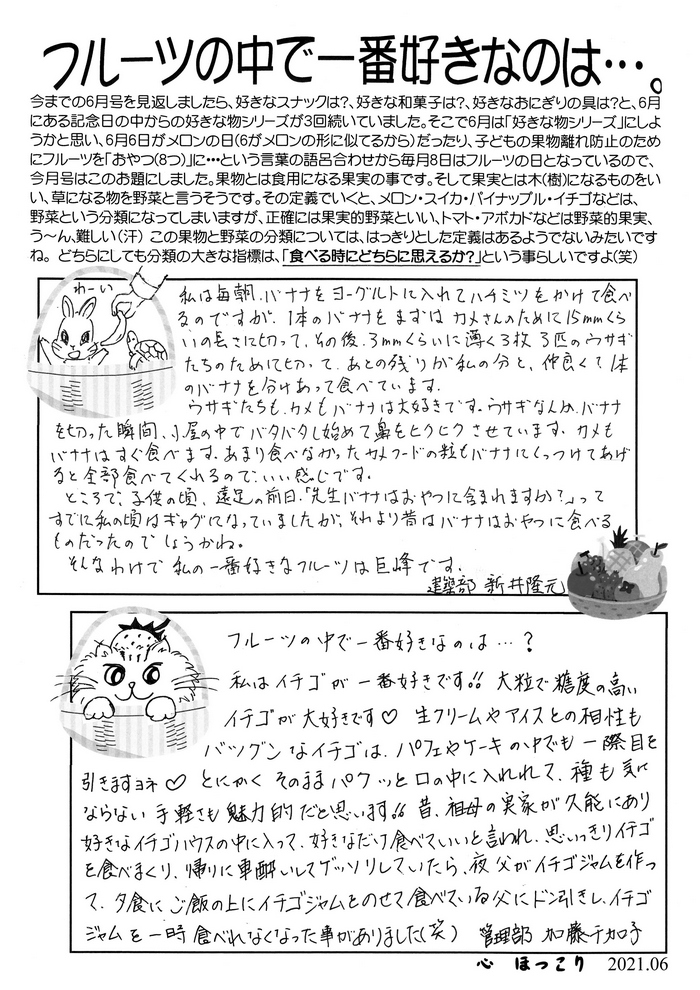 フルーツの中で一番好きなのは…。
今までの6月号を見返しましたら、好きなスナックは?、好きな和菓子は?、好きなおにぎりの具は?と、6月
にある記念日の中からの好きな物シリーズが3回続いていました。そこで6月は「好きな物シリーズ」にしよ
うかと思い、6月6日がメロンの日(6がメロンの形に似てるから)だったり、子どもの果物離れ防止のため
にフルーツを「おやつ(8つ)」に…という言葉の語呂合わせから毎月8日はフルーツの日となっているので、
今月号はこのお題にしました。果物とは食用になる果実の事です。そして果実とは木(樹)になるものをい
い、草になる物を野菜と言うそうです。その定義でいくと、メロン・スイカ・パイナップル・イチゴなどは、
野菜という分類になってしまいますが、正確には果実的野菜といい、トマト・アボカドなどは野菜的果実、
う〜ん、難しい(汗) この果物と野菜の分類については、はっきりとした定義はあるようでないみたいです
ね。どちらにしても分類の大きな指標は、「食べる時にどちらに思えるか?」という事らしいですよ(笑)
わーい
私は毎朝、バナナをヨーグルトに入れてハチミツをかけて食べ
るのですが、1本のバナナをまずは カメさんのために15mmくら
いの長さに切って、その後、3mmくらいに薄く3枚 3匹のウサギ
たちのために切って、あとの残りが私の分と、仲良く1本
のバナナを分けあって食べています。
ウサギたちも、カメもバナナは大好きです。ウサギなんか、バナナ
を切った瞬間、小屋の中でバタバタし始めて鼻をヒクヒクさせています。カメも
バナナはすぐ食べます。あまり食べなかったカメフードの粒もバナナにくっつけてあげ
ると全部食べてくれるので、いい感じです。
ところで、子供の頃、遠足の前日、「先生バナナはおやつに含まれますか?」って
すでに私の頃はギャグになっていましたが、それより昔はバナナはおやつに食べる
ものだったのでしょうかね。
そんなわけで 私の一番好きなフルーツは巨峰です。
建築部 新井隆元
フルーツの中で一番好きなのは…?
私はイチゴが一番好きです!! 大粒で糖度の高い
イチゴが大好きです♡ 生クリームやアイスとの相性も
バツグンなイチゴは、パフェやケーキの中でも一際目を
引きますヨネ♡ とにかく そのままパクッと口の中に入れれて、種も気に
ならない手軽さも魅力的だと思います!! 昔、祖母の実家が久能にあり
好きなイチゴハウスの中に入って、好きなだけ食べていいと言われ、思いっきりイチゴ
を食べまくり、帰りに車酔いしてゲッソリしていたら、夜父がイチゴジャムを作っ
て、夕食にご飯の上にイチゴジャムをのせて食べている父にドン引きし、イチゴ
ジャムを一時食べれなくなった事がありました(笑) 管理部 加藤千加子
心 ほっこり 2021.06